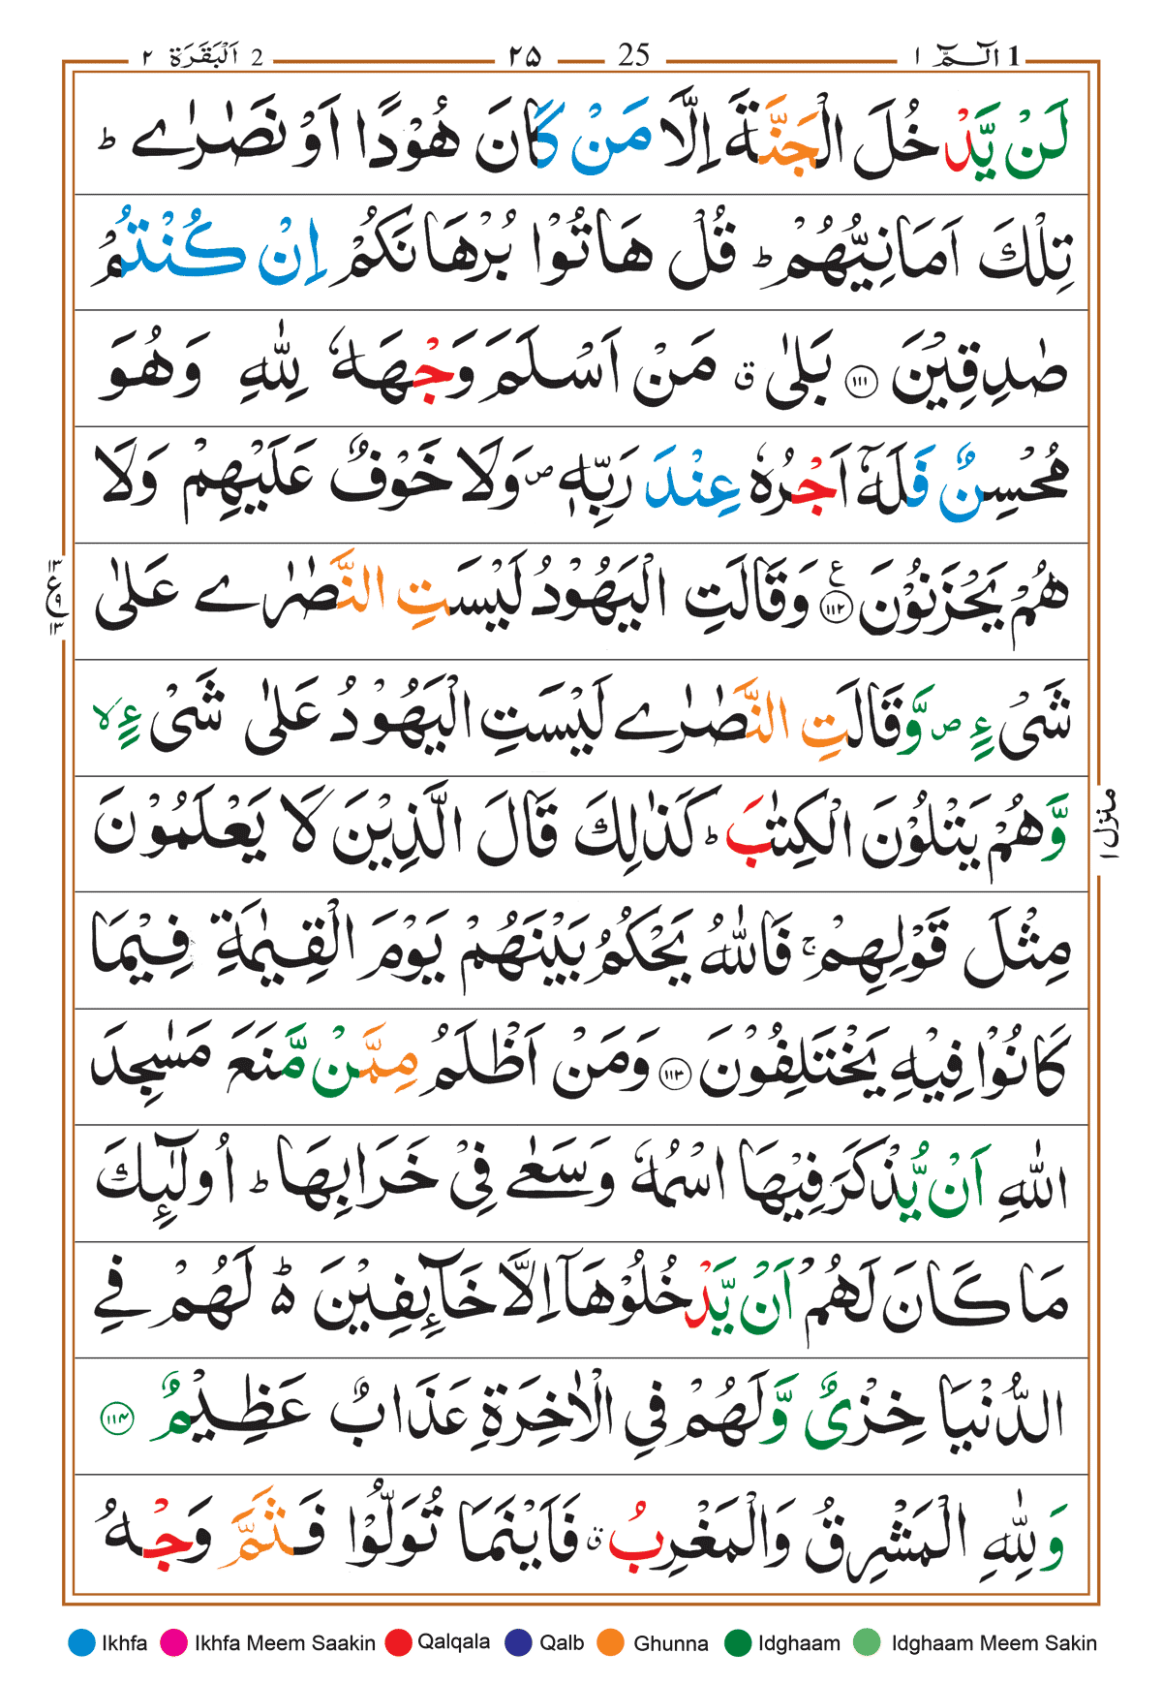 1 الٓـمّٓ ۱ 25 ۲۵ 2 اَلْبَقَرَة ۲
لَنْ يَّدْخُلَ الْجَنَّةَ اِلَّا مَنْ كَانَ هُوْدًا اَوْ نَصٰرٰے ؕ
تِلْكَ اَمَانِيُّهُمْ ؕ قُلْ هَاتُوْا بُرْهَانَكُمْ اِنْ كُنْتُمْ
صٰدِقِيْنَ ﴿۱۱۱﴾ بَلٰى ۗ مَنْ اَسْلَمَ وَجْهَهٗ لِلّٰهِ وَهُوَ
مُحْسِنٌ فَلَهٗٓ اَجْرُهٗ عِنْدَ رَبِّهٖ ۪ وَلَا خَوْفٌ عَلَيْهِمْ وَلَا
هُمْ يَحْزَنُوْنَ ﴿۱۱۲﴾ ع وَقَالَتِ الْيَهُوْدُ لَيْسَتِ النَّصٰرٰے عَلٰى
شَىْءٍ ۪ وَّقَالَتِ النَّصٰرٰے لَيْسَتِ الْيَهُوْدُ عَلٰى شَىْءٍ ۙ
وَّهُمْ يَتْلُوْنَ الْكِتٰبَ ؕ كَذٰلِكَ قَالَ الَّذِيْنَ لَا يَعْلَمُوْنَ
مِثْلَ قَوْلِهِمْ ۚ فَاللّٰهُ يَحْكُمُ بَيْنَهُمْ يَوْمَ الْقِيٰمَةِ فِيْمَا
كَانُوْا فِيْهِ يَخْتَلِفُوْنَ ﴿۱۱۳﴾ وَمَنْ اَظْلَمُ مِمَّنْ مَّنَعَ مَسٰجِدَ
اللّٰهِ اَنْ يُّذْكَرَ فِيْهَا اسْمُهٗ وَسَعٰى فِىْ خَرَابِهَا ؕ اُولٰٓئِكَ
مَا كَانَ لَهُمْ اَنْ يَّدْخُلُوْهَآ اِلَّا خَآئِفِيْنَ ؕ۵ لَهُمْ فِے
الدُّنْيَا خِزْىٌ وَّلَهُمْ فِى الْاٰخِرَةِ عَذَابٌ عَظِيْمٌ ﴿۱۱۴﴾
وَلِلّٰهِ الْمَشْرِقُ وَالْمَغْرِبُ ۗ فَاَيْنَمَا تُوَلُّوْا فَثَمَّ وَجْهُ
۱۳ ع ۹ ۱۳
منزل ۱
Ikhfa Ikhfa Meem Saakin Qalqala Qalb Ghunna Idghaam Idghaam Meem Sakin